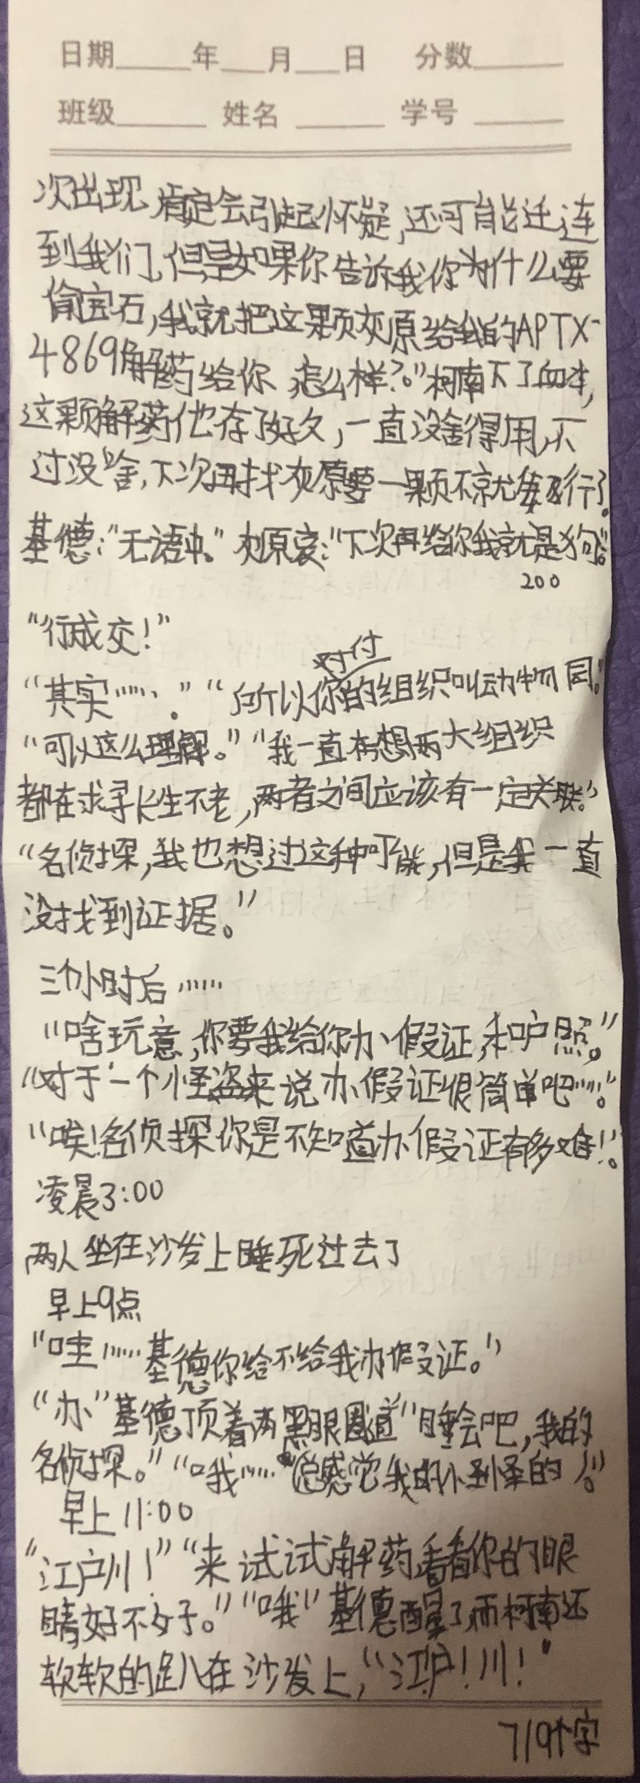 日期____年___月___日 分数____
班级____ 姓名____ 学号____
次出现,肯定会引起怀疑,还可能迁连
到我们,但是如果你告诉我你为什么要
偷宝石,我就把这颗灰原给我的APTX-
4869解药给你,怎么样?。”柯南下了血本,
这颗解药他存了好久,一直没舍得用,不
过没啥,下次再找灰原要一颗不就行了。
基德:“无语中。”灰原哀:“下次再给你我就是狗。”
200
“行成交!”
对付
“其实……。”“所以你的组织叫动物园。”
“可以这么理解。”“我一直有想两大组织
都在求寻长生不老,两者之间应该有一定关联。”
“名侦探,我也想过这种可能,但是我一直
没找到证据。”
三个小时后……
“啥玩意,你要我给你办假证,和护照。”
“对于一个怪盗来说办假证很简单吧……。”
“唉!名侦探你是不知道办假证有多难!。”
凌晨3:00
两人坐在沙发上睡死过去了
早上9点
“哇……基德你给不给我办假证。”
“办”基德顶着两黑眼圈道“睡会吧,我的
名侦探。”“哦……感觉我的怪怪的!。”
早上11:00
“江户川!”“来试试解药,看看你的眼
睛好不好。”“哦”基德醒了而柯南还
软软的趴在沙发上,“江!户!川!”
719个字